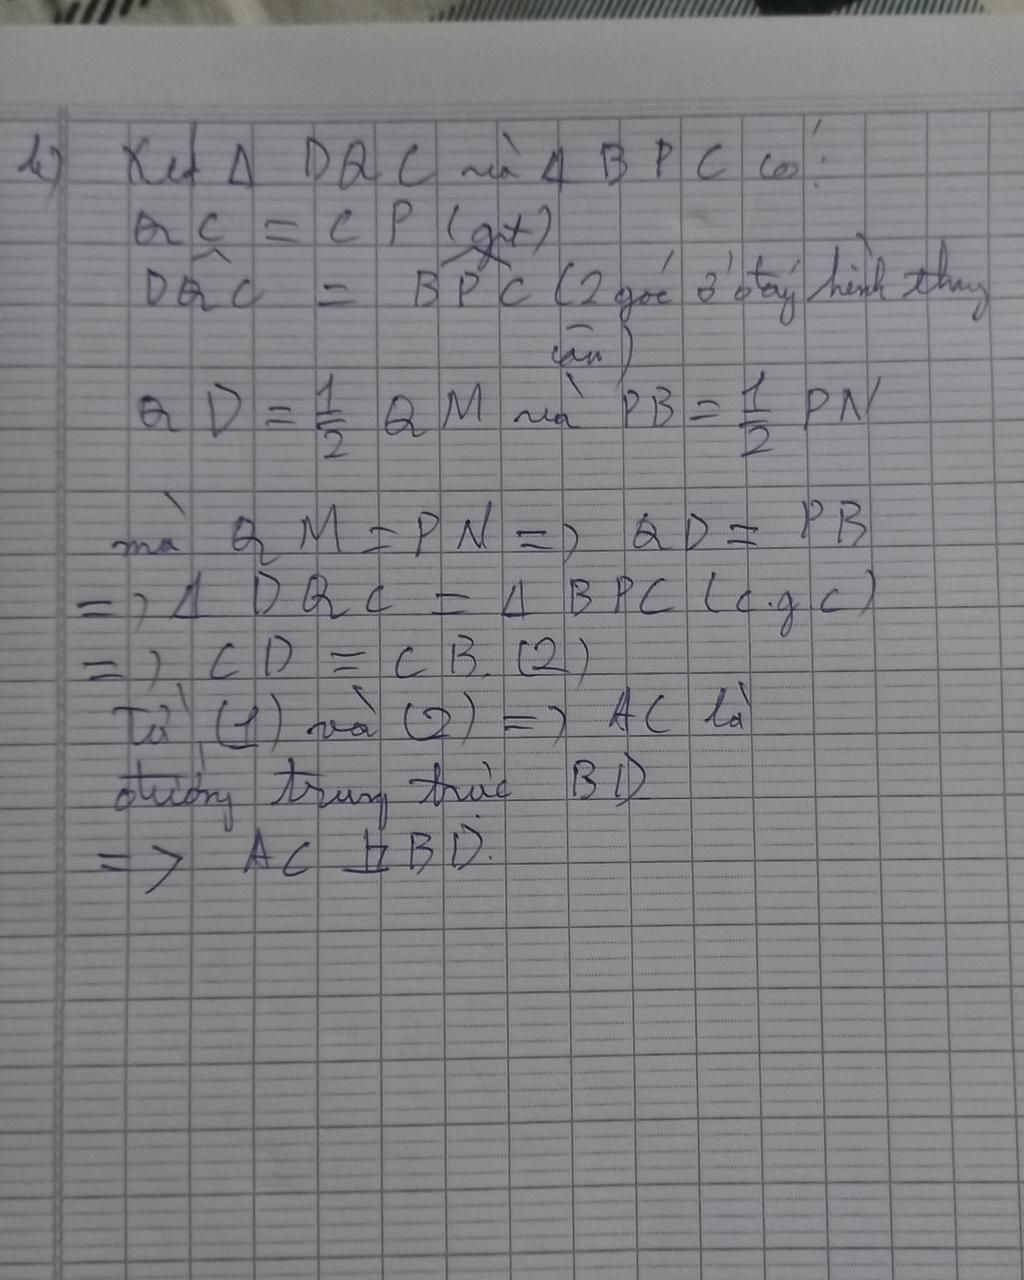 b) Xét Δ DQC và Δ BPC có:
QC = CP (gt)
DQ̂C = BP̂C (2 góc ở đáy hình thang
cân)
QD = 1/2 QM và PB = 1/2 PN
mà QM = PN => QD = PB
=> Δ DQC = Δ BPC (c.g.c)
=> CD = CB. (2)
Từ (1) và (2) => AC là
đường trung trực BD
=> AC ⊥ BD.